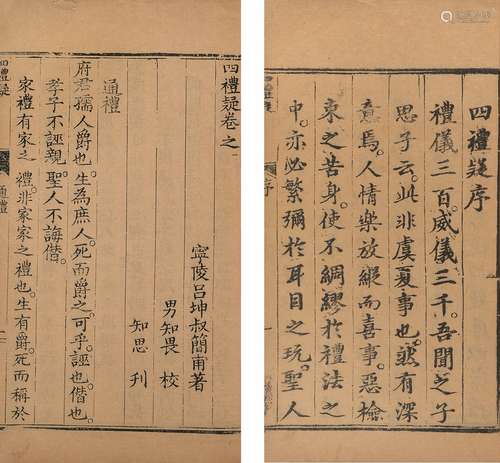 四禮疑序
禮儀三百。威儀三千。吾聞之子
思子云。此非虞夏事也。然有深
意焉。人情樂放縱而喜事。惡檢
束之苦身。使不綢繆於禮法之
中。亦必繁彌於耳目之玩。聖人
四禮疑卷之一
寧陵呂坤叔簡甫著
男知畏校
知思刊
通禮
府君孺人爵也。生為庶人。死而爵之。可乎。誣也。僭也。
孝子不誣親。聖人不誨僭。
家禮有家之禮。非家家之禮也。生有爵。死而稱於
四禮疑
通禮
序